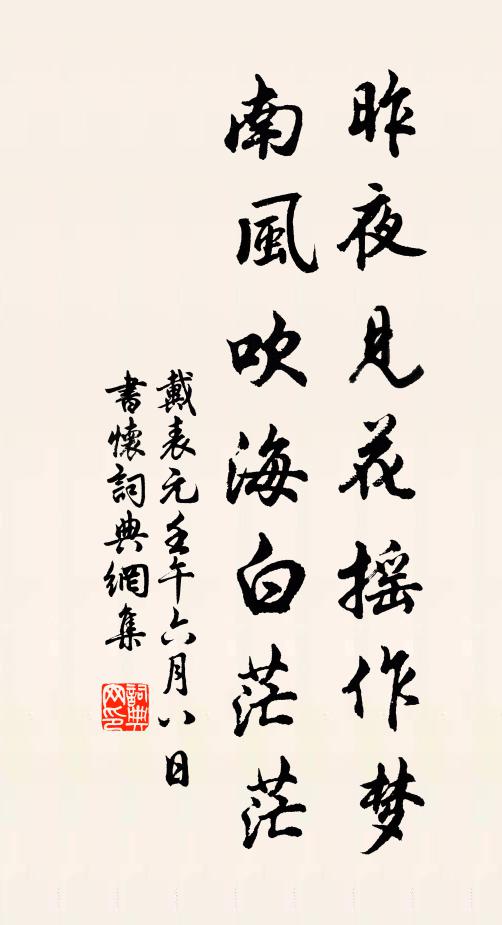 昨夜見花摇作梦
南風吹海白茫茫
戴表元壬午六月八日
書懷詞典網集
詞典网印